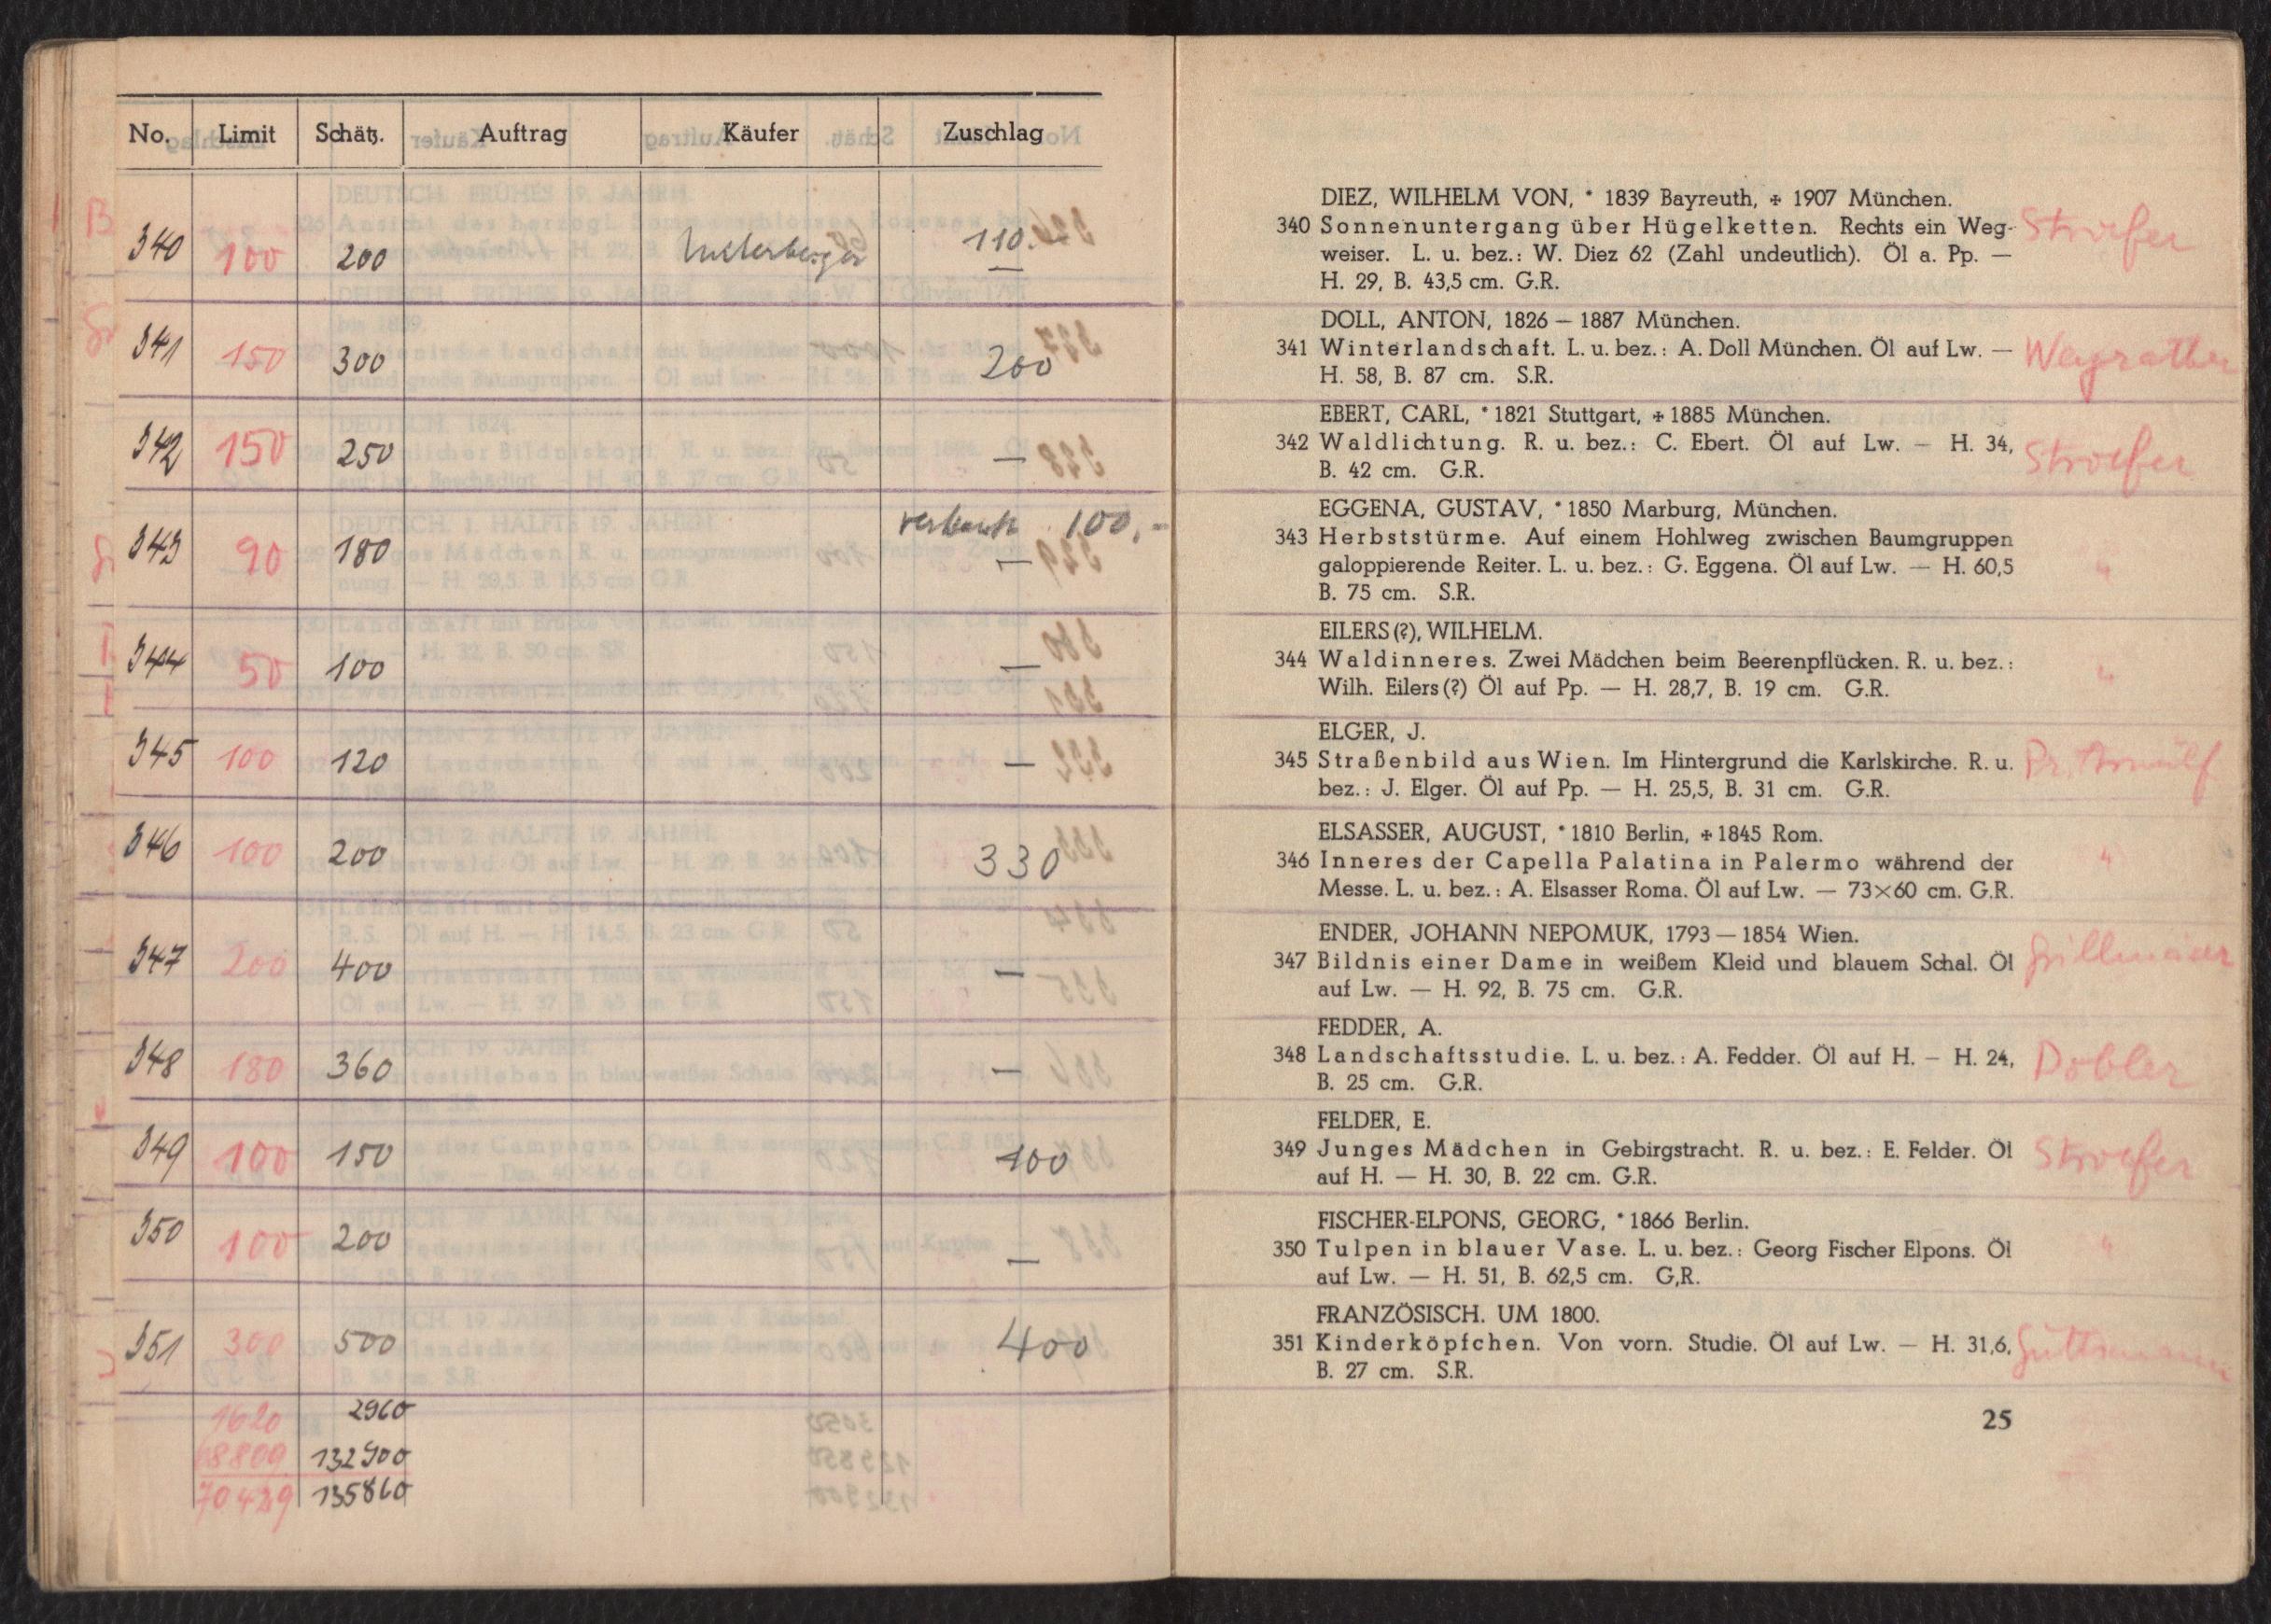 No. Limit Schätz. Auftrag Käufer Zuschlag
340 100 200 110.-
341 150 300 200
342 150 250 —
343 90 180 verkauft 100.- —
344 50 100 —
345 100 120 —
346 100 200 330
347 200 400 —
348 180 360 —
349 100 150 100
350 100 200 —
351 300 500 400
1620 2960
68809 132900
70429 135860
DIEZ, WILHELM VON, * 1839 Bayreuth, ✢ 1907 München.
340 Sonnenuntergang über Hügelketten. Rechts ein Weg- Stroefer
weiser. L. u. bez.: W. Diez 62 (Zahl undeutlich). Öl a. Pp. —
H. 29, B. 43,5 cm. G.R.
DOLL, ANTON, 1826 — 1887 München.
341 Winterlandschaft. L. u. bez.: A. Doll München. Öl auf Lw. — Weyrather
H. 58, B. 87 cm. S.R.
EBERT, CARL, * 1821 Stuttgart, ✢ 1885 München.
342 Waldlichtung. R. u. bez.: C. Ebert. Öl auf Lw. — H. 34, Stroefer
B. 42 cm. G.R.
EGGENA, GUSTAV, * 1850 Marburg, München.
343 Herbststürme. Auf einem Hohlweg zwischen Baumgruppen
galoppierende Reiter. L. u. bez.: G. Eggena. Öl auf Lw. — H. 60,5 "
B. 75 cm. S.R.
EILERS (?), WILHELM.
344 Waldinneres. Zwei Mädchen beim Beerenpflücken. R. u. bez.: "
Wilh. Eilers (?) Öl auf Pp. — H. 28,7, B. 19 cm. G.R.
ELGER, J.
345 Straßenbild aus Wien. Im Hintergrund die Karlskirche. R. u. Pr. Arnulf
bez.: J. Elger. Öl auf Pp. — H. 25,5, B. 31 cm. G.R.
ELSASSER, AUGUST, * 1810 Berlin, ✢ 1845 Rom.
346 Inneres der Capella Palatina in Palermo während der "
Messe. L. u. bez.: A. Elsasser Roma. Öl auf Lw. — 73×60 cm. G.R.
ENDER, JOHANN NEPOMUK, 1793 — 1854 Wien.
347 Bildnis einer Dame in weißem Kleid und blauem Schal. Öl Grillmaier
auf Lw. — H. 92, B. 75 cm. G.R.
FEDDER, A.
348 Landschaftsstudie. L. u. bez.: A. Fedder. Öl auf H. — H. 24, Döbler
B. 25 cm. G.R.
FELDER, E.
349 Junges Mädchen in Gebirgstracht. R. u. bez.: E. Felder. Öl Stroefer
auf H. — H. 30, B. 22 cm. G.R.
FISCHER-ELPONS, GEORG, * 1866 Berlin.
350 Tulpen in blauer Vase. L. u. bez.: Georg Fischer Elpons. Öl "
auf Lw. — H. 51, B. 62,5 cm. G,R.
FRANZÖSISCH. UM 1800.
351 Kinderköpfchen. Von vorn. Studie. Öl auf Lw. — H. 31,6, Guttmann
B. 27 cm. S.R.
25